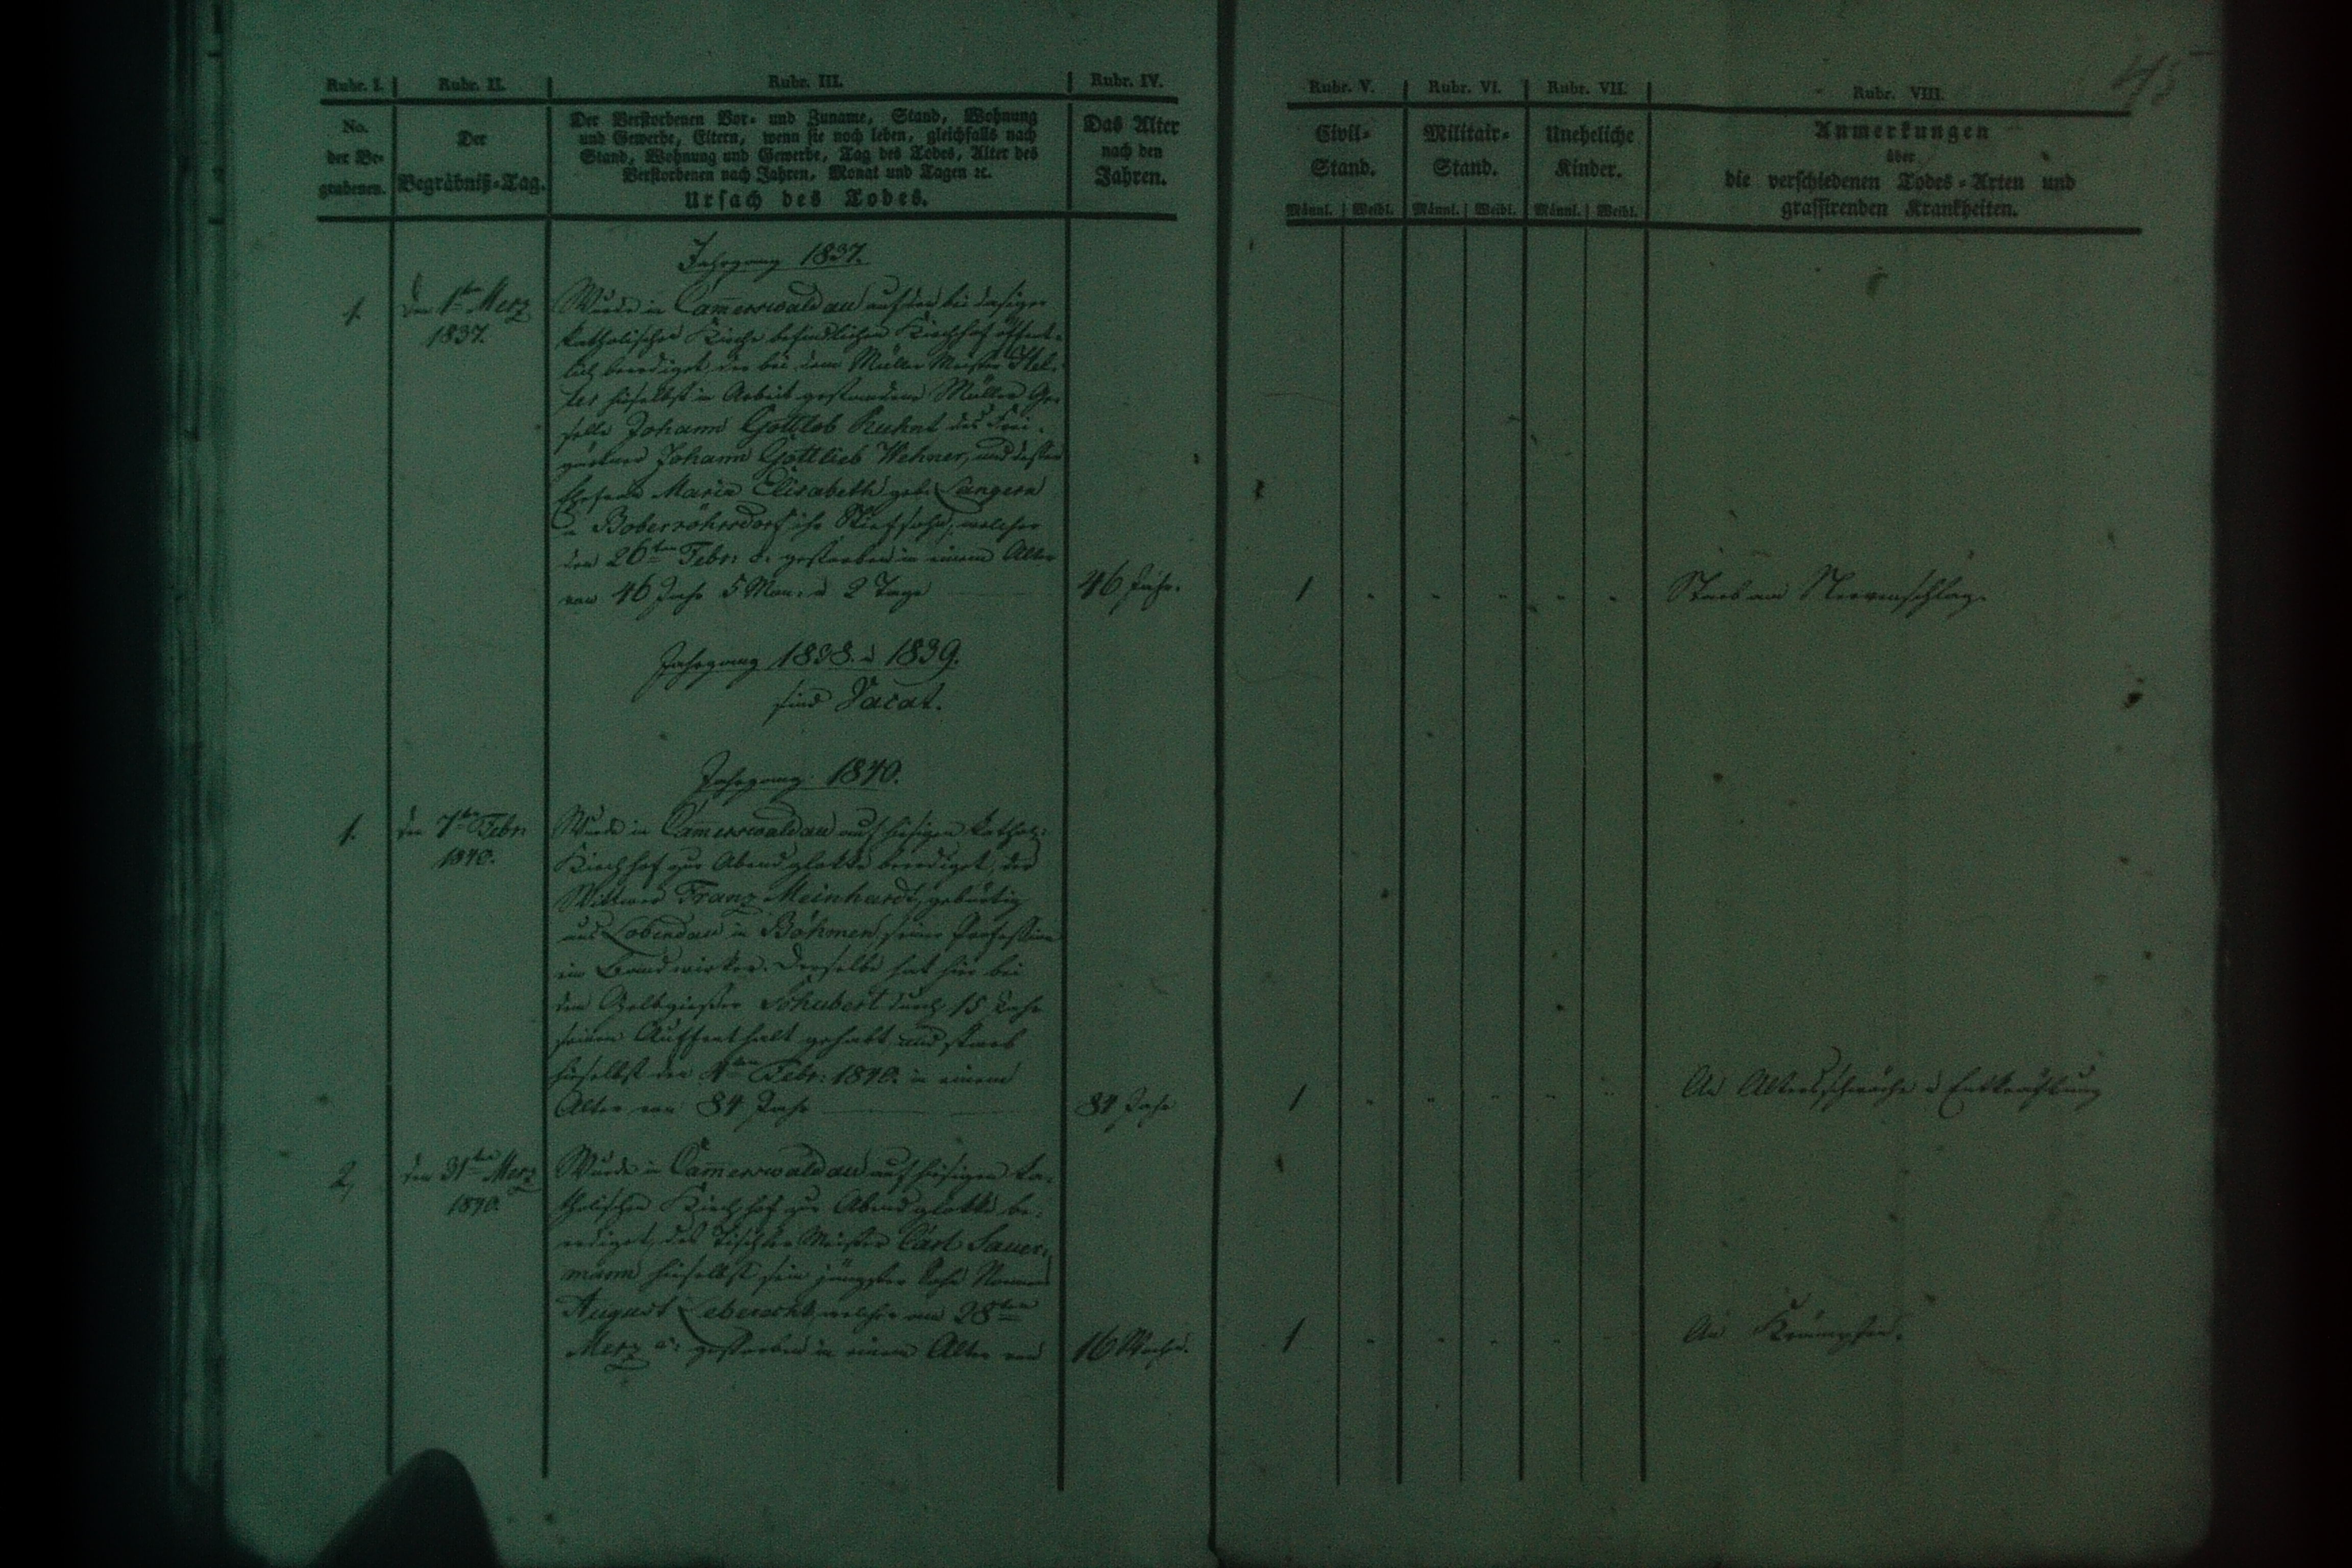 45
Rubr. I. Rubr. II. Rubr. III. Rubr. IV. Rubr. V. Rubr. VI. Rubr. VII. Rubr. VIII.
No.
der Be-
grabenen.
Der
Begräbniß-Tag.
Der Verstorbenen Vor- und Zuname, Stand, Wohnung
und Gewerbe, Eltern, wenn sie noch leben, gleichfalls nach
Stand, Wohnung und Gewerbe, Tag des Todes, Alter des
Verstorbenen nach Jahren, Monat und Tagen ꝛc.
Ursach des Todes.
Das Alter
nach den
Jahren.
Civil-
Stand.
Männl. Weibl.
Militair-
Stand.
Männl. Weibl.
Uneheliche
Kinder.
Männl. Weibl.
Anmerkungen
über
die verschiedenen Todes-Arten und
grassirenden Krankheiten.
Jahrgang 1837.
1.
Den 1ten Merz
1837.
Wurde in Cam̅erswaldau auf den bei dasiger
katholischer Kirche befindlichen Kirchhof öffent-
lich beerdiget, der bei dem Müller Meister
hieselbst in Arbeit gestandene Müller Ge-
selle Johann Gottlob Kuhnt des Frei-
gärtner Johann Gottlieb Wehner, und dessen
Ehefrau Maria Elisabeth geb. Langern
Boberröhrsdorf ihr Stiefsohn, welcher
den 26ten Febr: gestorben in einem Alter
von 46 Jahr 5 Mon. u 2 Tage
46 Jahr.
1
Starb am Nervenschlag.
Jahrgang 1838. u 1839.
sind Vacat.
Jahrgang 1840.
1.
den 7ten Febr.
1840.
Wurde in Cam̅erswaldau auf hiesigen kathol:
Kirchhof zur Abendglokke beerdiget, der
Wittwer Franz Meinhardt, gebürtig
aus Lobendau in Böhmen, seiner Profession
ein Bandwirker. Derselbe hat hier bei
dem Gelbgießer Schubert durch 15 Jahr
seinen Auffenthalt gehabt, und starb
hieselbst den 4ten Febr: 1840. in einem
Alter von 84 Jahr
84 Jahr
1
An Altersschwäche u Entkräftung
2,
den 31ten Merz
1840.
Wurde in Cam̅erswaldau auf hiesigen ka-
tholischen Kirchhof zur Abendglokke be-
erdiget, des Tischler Meister Carl Sauer-
mann hieselbst sein jüngster Sohn Namens
August Leberecht, welcher am 28ten
Merz a: gestorben in einem Alter von
16 Woch.
1
An Krämpfen.